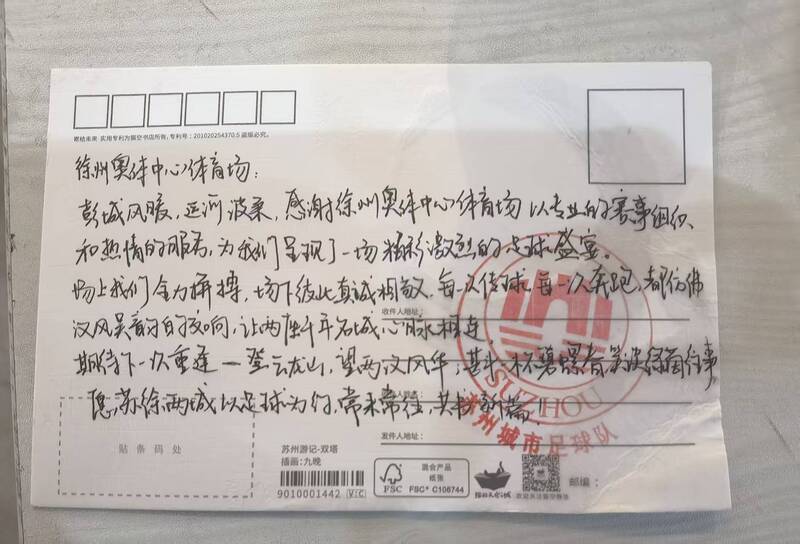 嗽枯未来·实用专利为猫空书店所有,专利号:201020254370.5 盗版必究。
徐州奥体中心体育场:
彭城风暖,运河波柔,感谢徐州奥体中心体育场以专业的赛事组织、
和热情的服务,为我们呈现了一场精彩激烈的足球盛宴。
场上我们全力拼搏,场下彼此真诚相敬,每一次传球,每一次奔跑,都仿佛
收件人地址:
汉风吴韵的交响,让两座千年名城心脉相连。
期待下一次重逢—登云龙山,望两汉风华,斟一杯碧螺春笑谈绿茵往事
愿苏徐两城以足球为约,常来常往,共书新篇!
SUZHOU
苏州城市足球队
发件人地址:
贴条码处
苏州游记-双塔
插画:九晚
9010001442 V:C
FSC
混合产品
纸张
FSC® C106744
邮编: